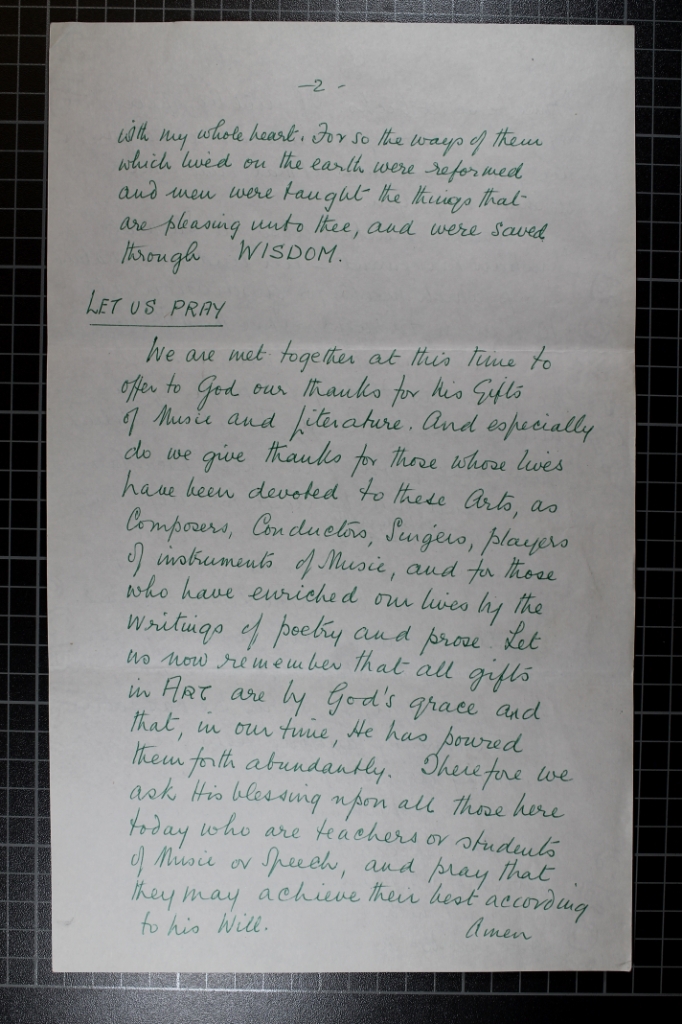 - 2 -
with my whole heart. For so the ways of them
which lived on the earth were reformed
and men were taught the things that
are pleasing unto thee, and were saved
through WISDOM.
LET US PRAY
We are met together at this time to
offer to God our thanks for his Gifts
of Music and Literature. And especially
do we give thanks for those whose lives
have been devoted to these Arts, as
Composers, Conductors, Singers, players
of instruments of Music, and for those
who have enriched our lives by the
writings of poetry and prose. Let
us now remember that all gifts
in ART are by God's grace and
that, in our time, He has poured
them forth abundantly. Therefore we
ask His blessing upon all those here
today who are teachers or students
of Music or Speech, and pray that
they may achieve their best according
to his Will. Amen